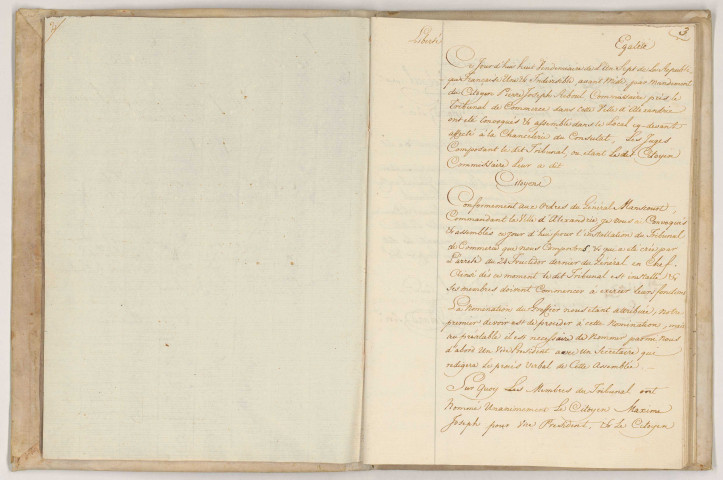 3
Liberté Egalité
Ce Jour d'hui huit Vendemiaire de l'An Sept de la Republi-
que Française Une & Indivisible, avant Midi, par Mandement
du Citoyen Pierre Joseph Reboul, Commissaire près le
Tribunal de Commerce, dans cette Ville d'Alexandrie
ont eté Convoqués & assemblés dans le Local cy-devant
affecté à la Chancelerie du Consulat, Les Juges
Composant le dit Tribunal, ou etant le dit Citoyen
Commissaire Leur a dit
Citoyens
Conformement aux ordres du Général Manscourt,
Commandant la Ville d'Alexandrie, je vous ai Convoqués
& assemblés ce Jour d'hui pour l'installation du Tribunal
de Commerce que nous Composons, & qui a eté créé par
L'arreté du 24 Fructidor dernier du Général en Chef.
Ainsi dès ce moment le dit Tribunal est installé, &
ses membres doivent Commencer à exercer leurs fonctions
La Nomination du Greffier nous etant attribuée, notre
premier devoir est de proceder à cette Nomination, mais
au préalable il est necessaire de Nommer parmi Nous
d'abord Un Vice President avec Un Secretaire qui
redigera le procès Verbal de Cette Assemblée
Sur Quoy Les Membres du Tribunal ont
Nommé Unanimement Le Citoyen Maxime
Joseph pour Vice President, & Le Citoyen